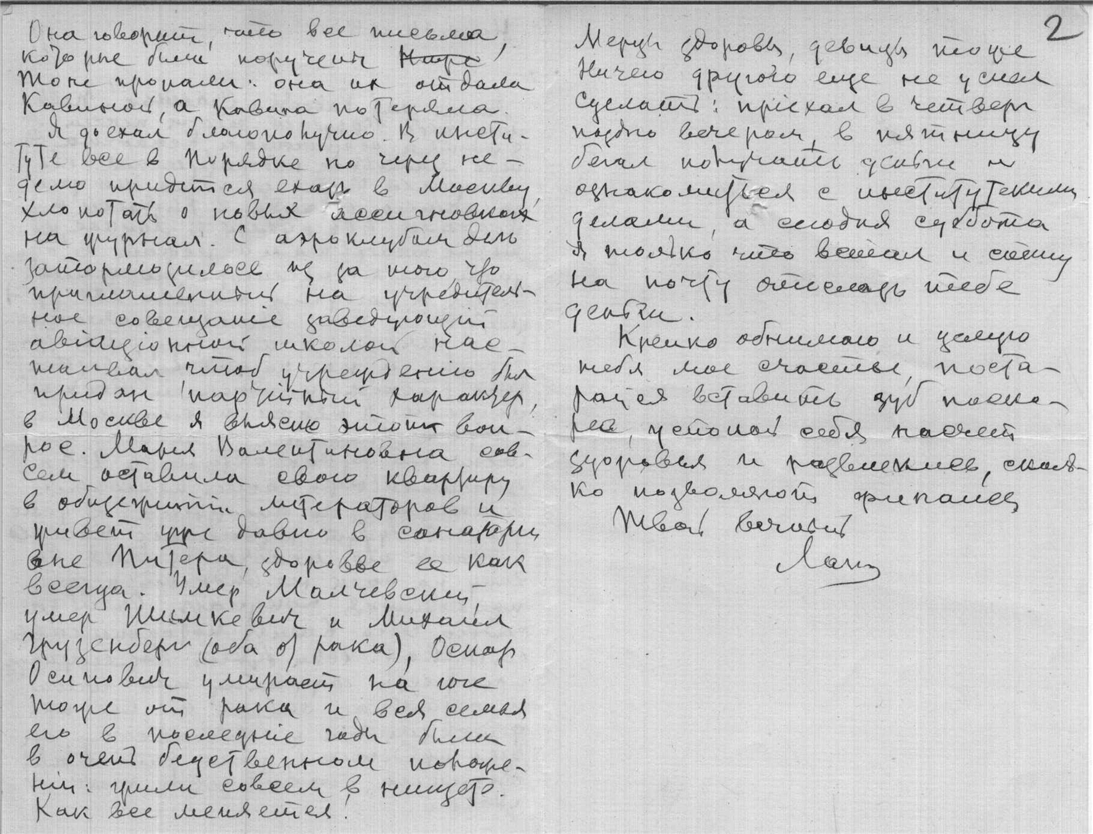 Она говорит, что все письма,
которые были поручены
тоже пропали: она их отдала
Кавиной, а Кавина потеряла.
Я доехал благополучно. В инсти-
туте все в порядке но через не-
делю придется ехать в Москву,
хлопотать о новых ассигновках
на журнал. С аэроклубом дело
затормозилось из за того что
приглашенный на учредитель-
ное совещаніе заведующій
авіаціонной школой нас-
таивал чтоб учрежденію был
придан партійный характер,
в Москве я выясню этот воп-
рос. Марія Валентиновна сов-
сем оставила свою квартиру
в общежитіи литераторов и
живет уже давно в санаторіи
вне Питера, здоровье ее как
всегда. Умер Малчевский,
умер Шимкевич и Михаил
Грузенберг (оба от рака), Оскар
Осипович умирает на юге
тоже от рака и вся семья
его в последніе годы были
в очень бедственном положе-
ніи: жили совсем в нищете.
Как все меняется!
2
Мерцы здоровы, девицы тоже
Ничего другого еще не успел
сделать: пріехал в четверг
поздно вечером, в пятницу
бегал получать деньги и
ознакомиться с институтскими
делами, а сегодня суббота
я только что встал и спешу
на почту отослать тебе
деньги.
Крепко обнимаю и целую
тебя мое счастье, поста-
райся вставить зуб поско-
рее, успокой себя насчет
здоровья и развлекись, сколь-
ко позволяют финансы
Твой вечный